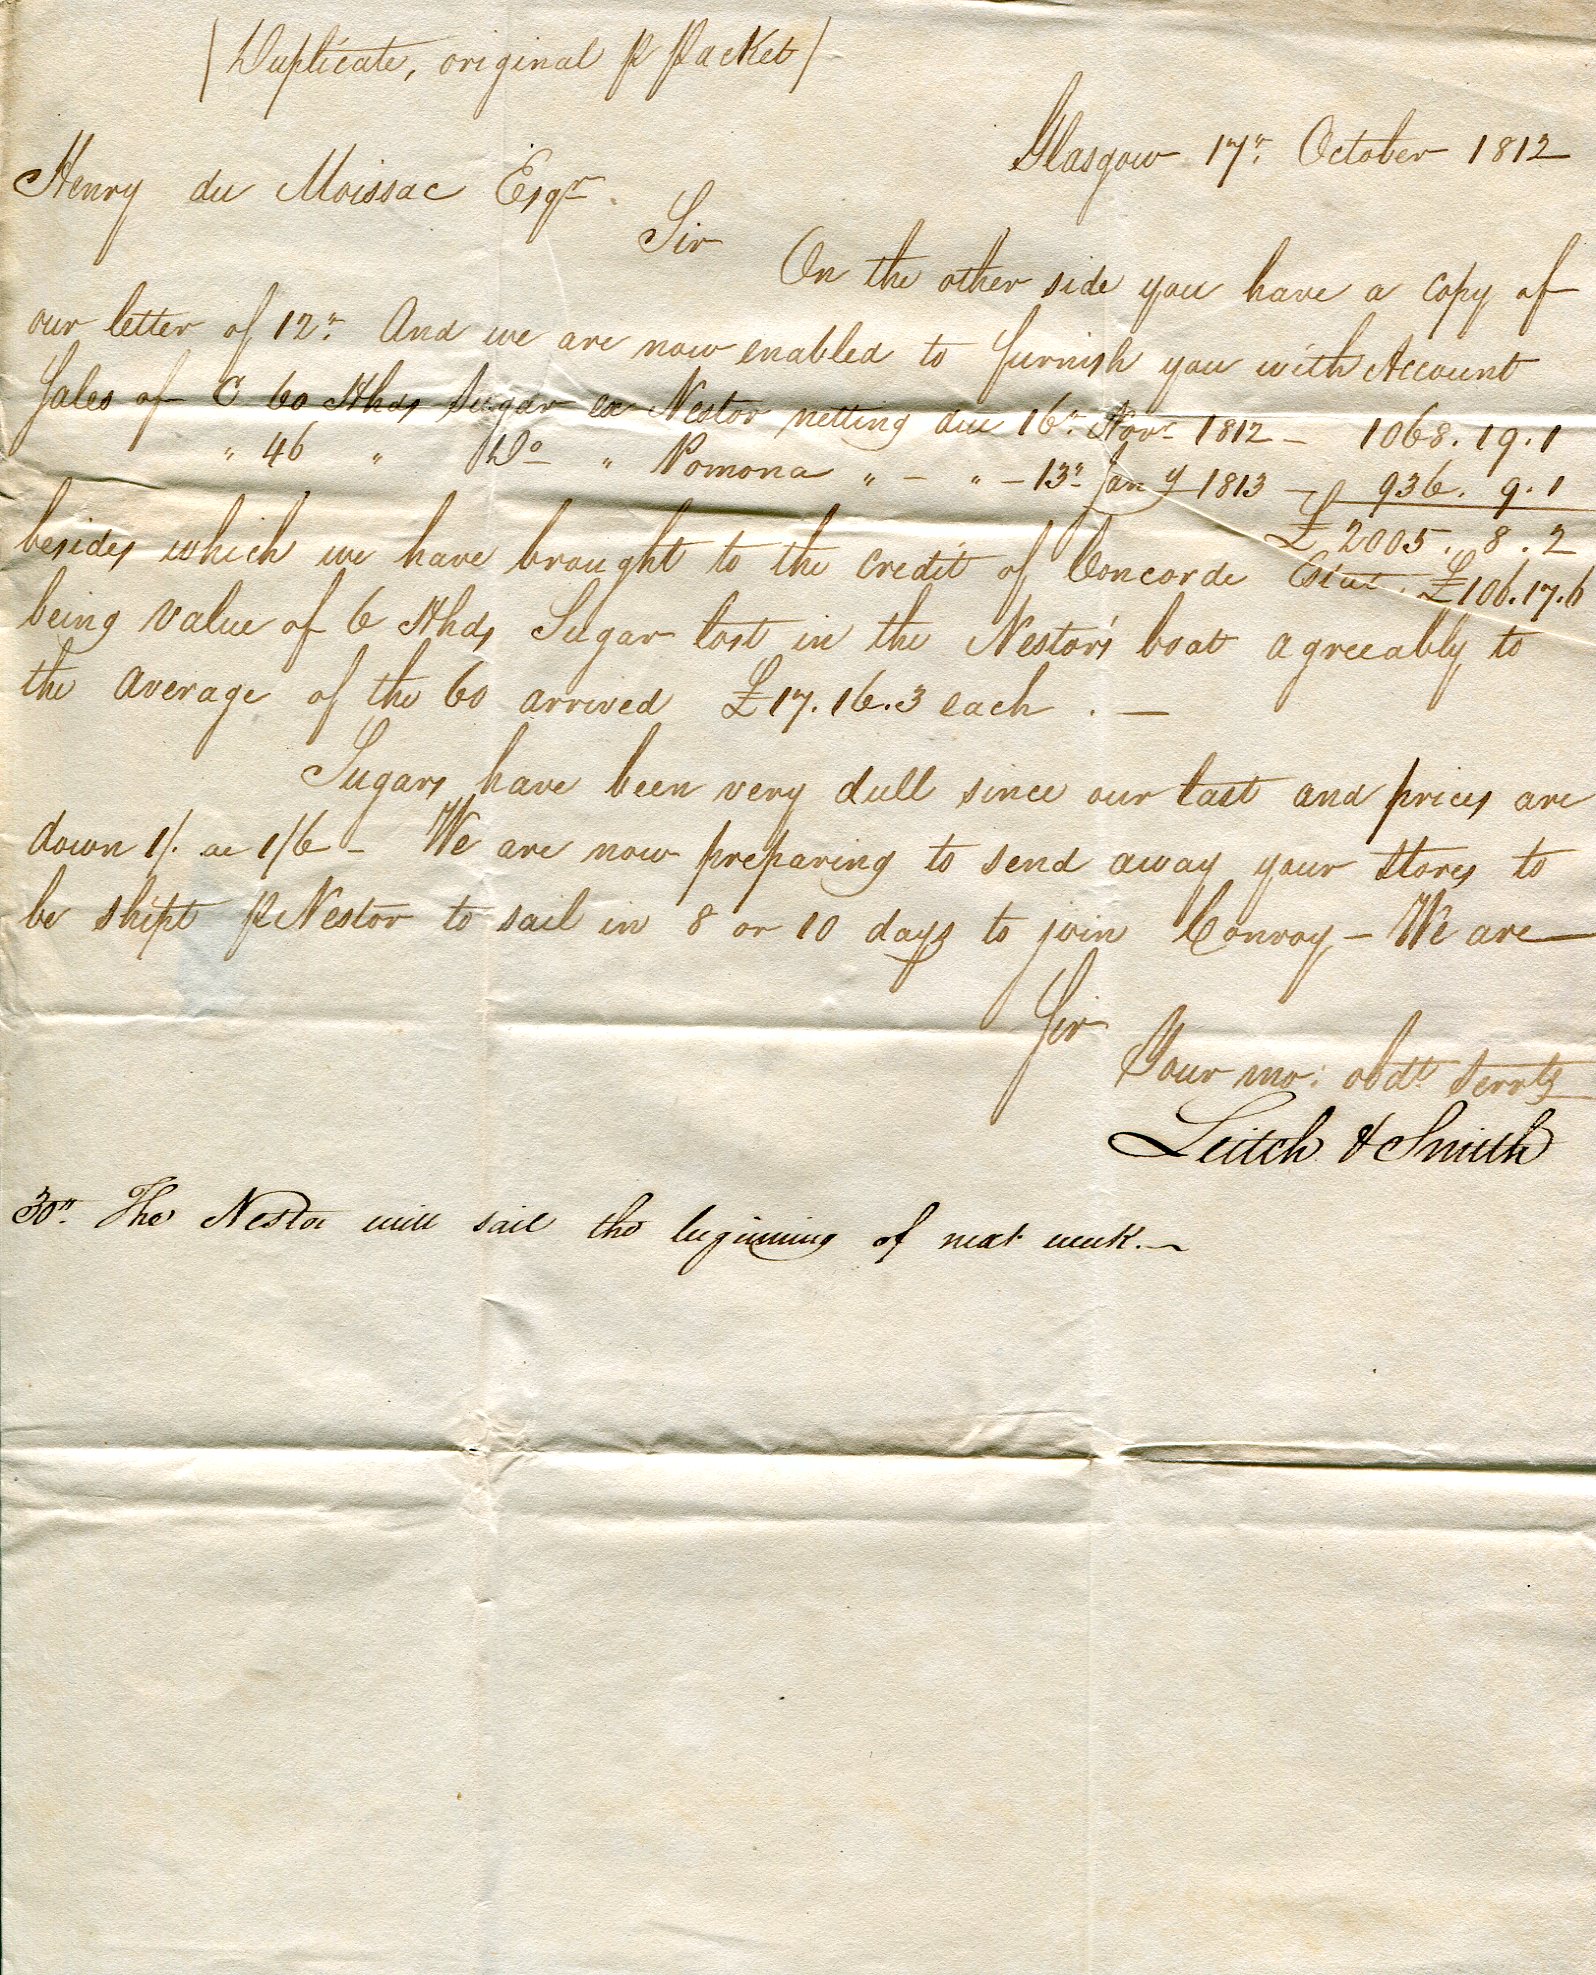 (Duplicate, original p Packet)
Glasgow 17th October 1812
Henry du Moissac Esqr.
Sir
On the other side you have a Copy of
our letter of 12th. And we are now enabled to furnish you with Account
Sales of C 60 Hhds Sugar ex Nestor netting due 16th Novr 1812 - 1068.19.1
" 46 " Do " Pomona " - " - 13th Jany 1813 - 936. 9.1
£ 2005. 8. 2
besides which we have brought to the credit of Concorde Estate £106.17.6
being value of 6 Hhds Sugar lost in the Nestor's boat agreeably to
the average of the 60 arrived £17.16.3 each . —
Sugars have been very dull since our last and prices are
down 1/. a 1/6 - We are now preparing to send away your Stores to
be shipt p Nestor to sail in 8 or 10 days to join Convoy - We are
Sir
Your mo: obdt Servts
Leitch & Smith
30th. The Nestor will sail the beginning of next week. —